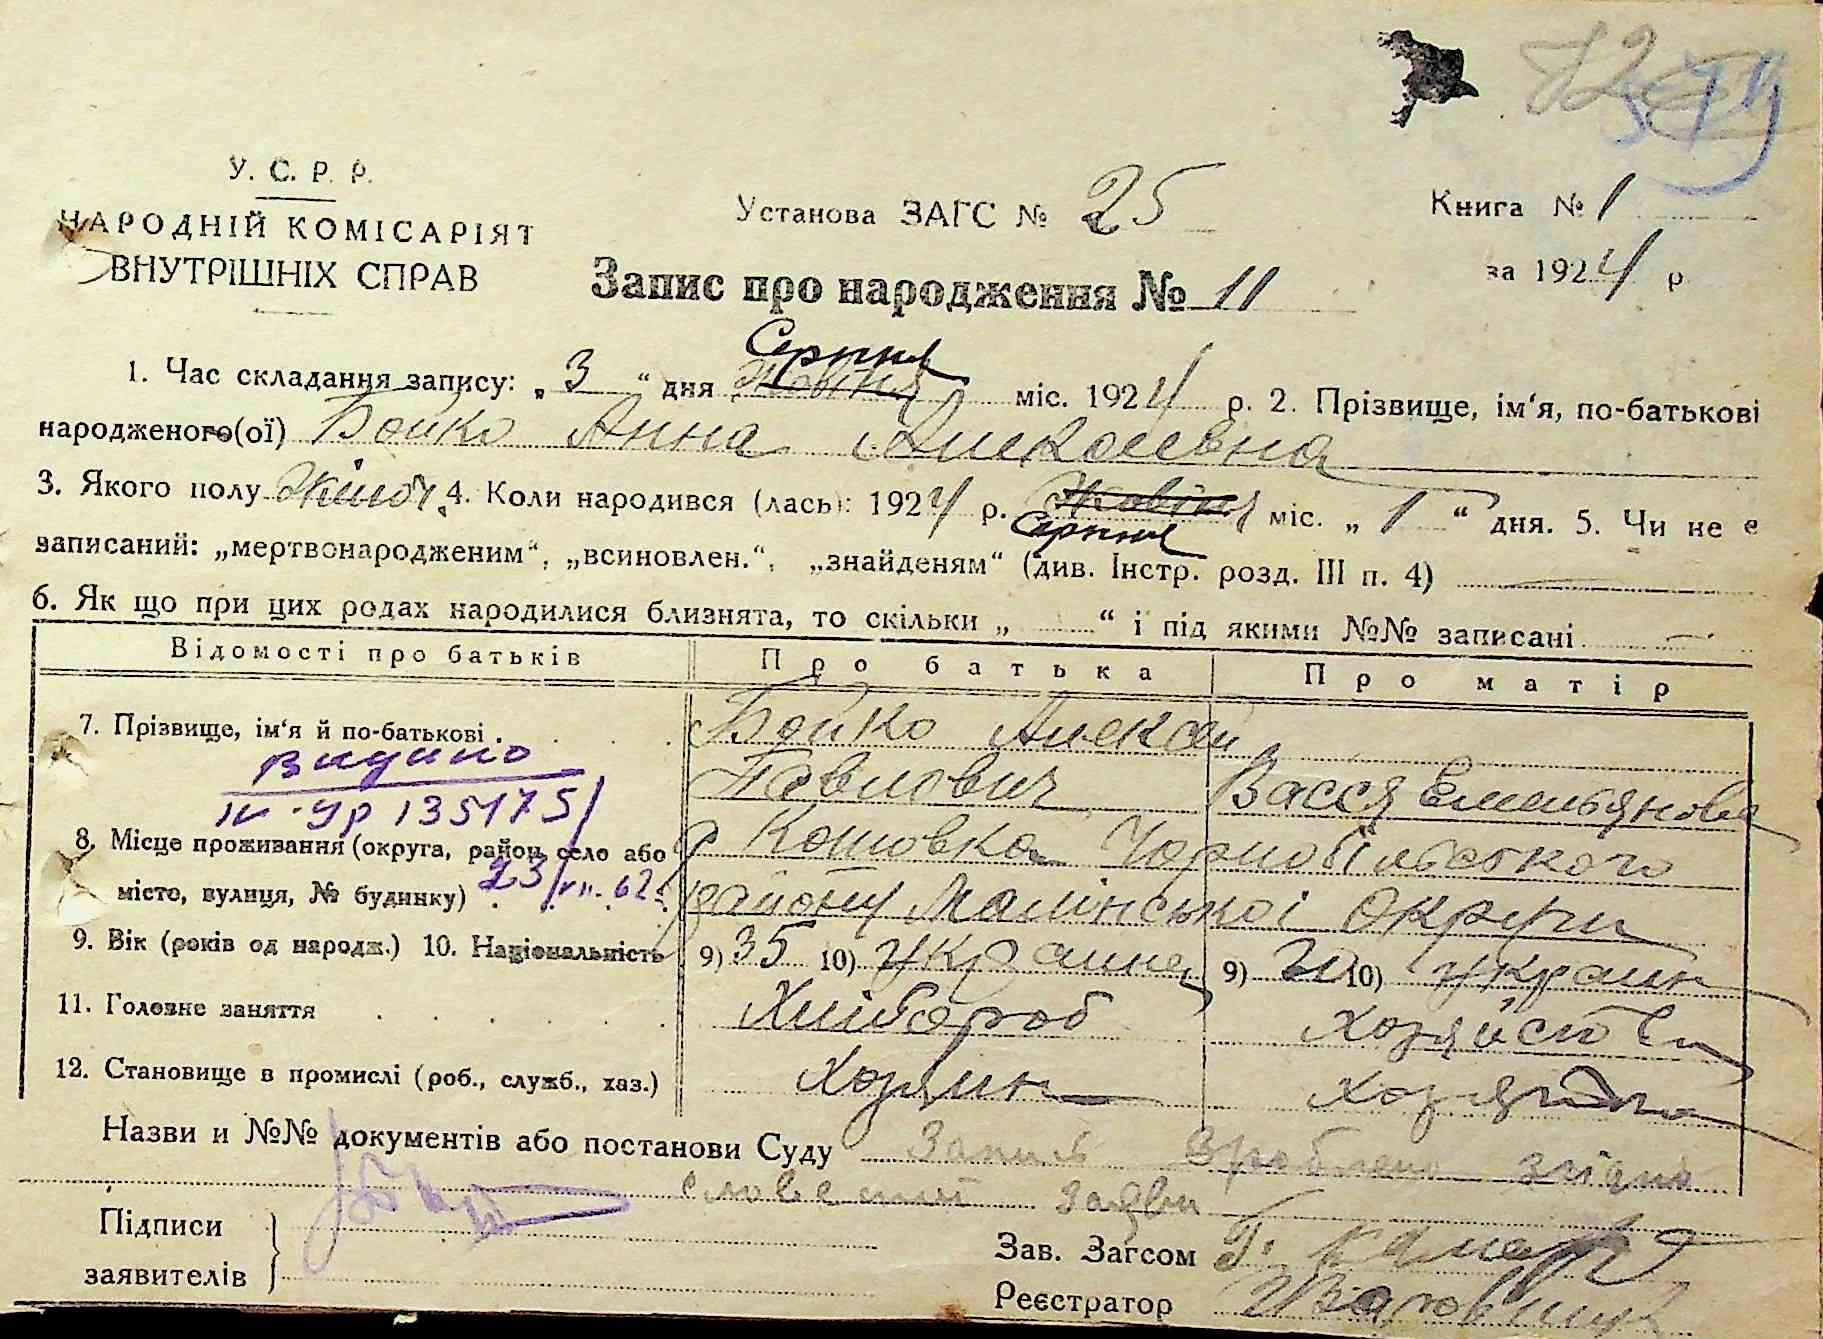 У. С. Р. Р.
НАРОДНІЙ КОМІСАРІЯТ
ВНУТРІШНІХ СПРАВ
Установа ЗАГС № 25
Книга № 1
за 1924 р
Запис про народження № 11
Серпня
1. Час складання запису: „3“ дня міс. 1924 р. 2. Прізвище, ім‘я, по-батькові
народженого(ої) Бойко Анна Алексеевна
3. Якого полу жіноч. 4. Коли народився (лась): 1924 р. Жовтня міс. „1“ дня. 5. Чи не є
Серпня
записаний: „мертвонародженим“, „всиновлен.“, „знайденям“ (див. Інстр. розд. III п. 4)
6. Як що при цих родах народилися близнята, то скільки „ “ і під якими №№ записані
Відомості про батьків Про батька Про матір
7. Прізвище, ім‘я й по-батькові Бойко Алексей
Павлович Васся Емельянова
видано
135175
8. Місце проживання (округа, район, село або Чорнобільского
місто, вулиця, № будинку) району Малінської Округи
23/VII-62
9. Вік (років од народж.) 10. Національність 9) 35 10) 9) 10) украин
11. Головне заняття Хлібороб
12. Становище в промислі (роб., служб., хаз.) Хозяин
Назви и №№ документів або постанови Суду Запись зроблено згідно
словесної заяви
Підписи
заявителів
Зав. Загсом Г.
Реєстратор